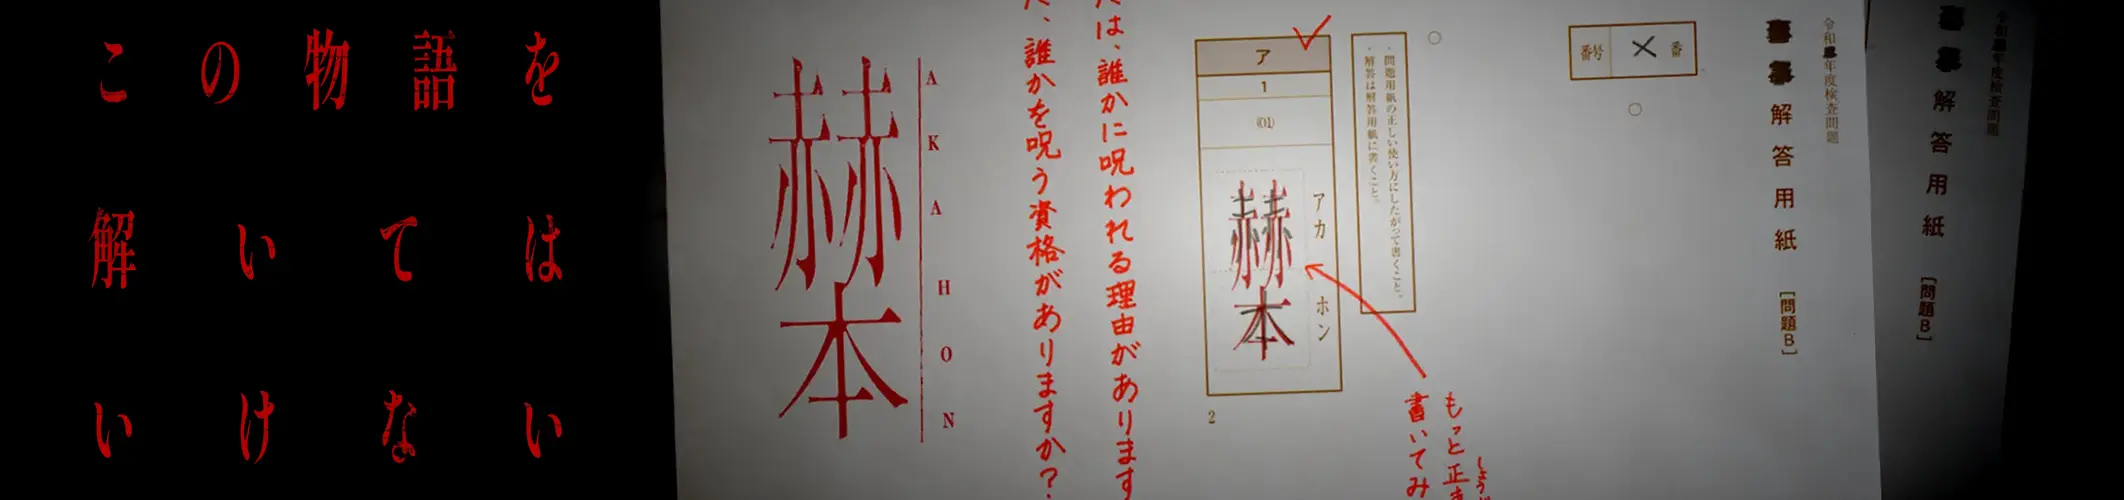 この物語を
解いては
いけない
令和 年度検査問題
解答用紙
[問題B]
令和 年度検査問題
解答用紙
[問題B]
番号
×
番
・問題用紙の正しい使い方にしたがって書くこと。
・解答は解答用紙に書くこと。
ア
1
(01)
アカ ホン
赫本
2
もっと正
書いてみ
は、誰かに呪われる理由があります
、誰かを呪う資格がありますか？
AKAHON
赫本